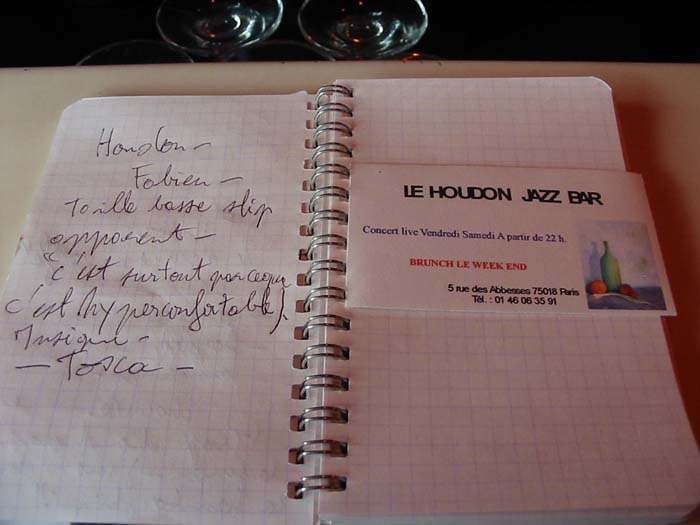 Houdon -
Fabien -
taille basse slip
apparent -
"c'est surtout parceque
c'est hyperconfortable).
Musique -
- Tosca -
LE HOUDON JAZZ BAR
Concert live Vendredi Samedi A partir de 22 h.
BRUNCH LE WEEK END
5 rue des Abbesses 75018 Paris
Tél. : 01 46 06 35 91